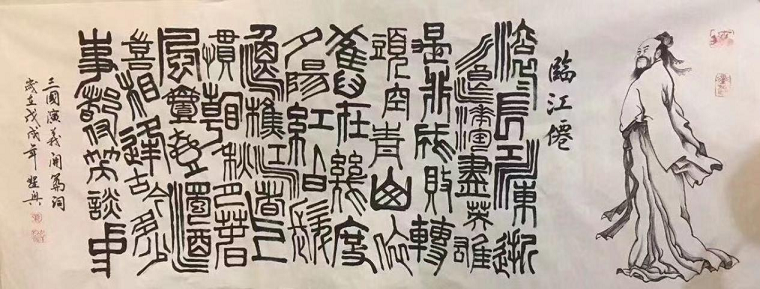 臨江僊
滾滾長江東逝
水浪花淘盡英雄
是非成敗轉
頭空青山依
舊在幾度
夕陽紅白髮
漁樵江渚上
慣看秋月春
風一壺濁酒
喜相逢古今多少
事都付笑談中
三國演義開篇詞
歲在戊戌年